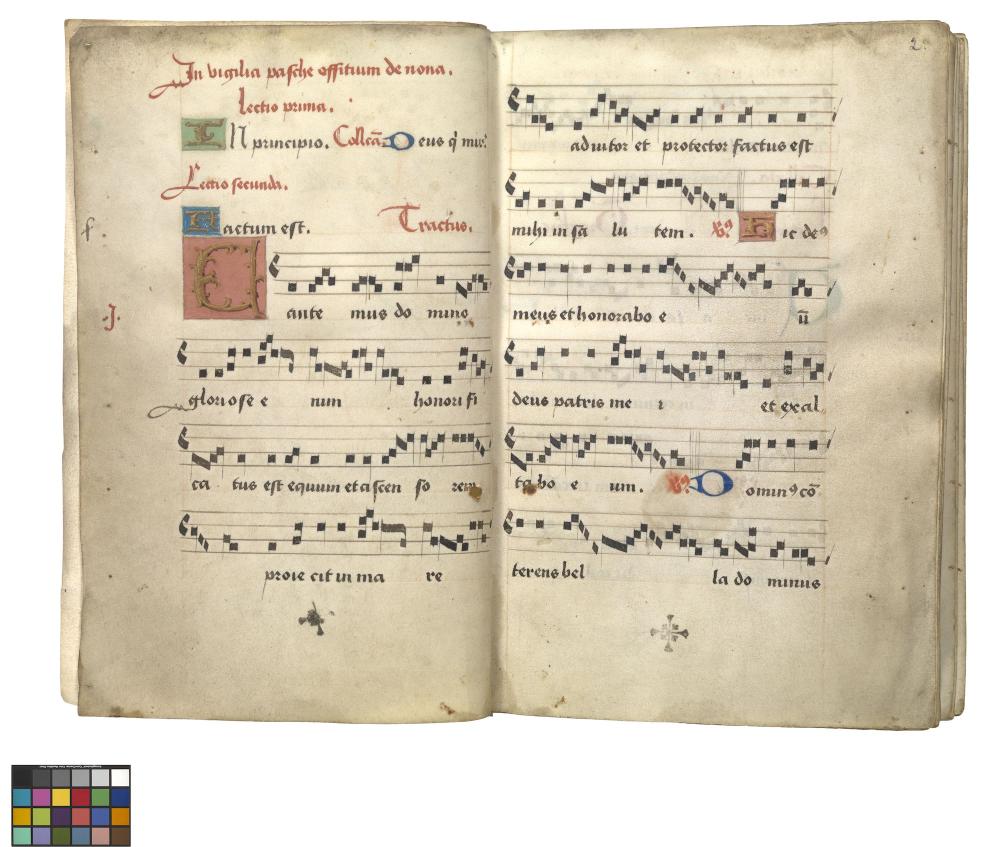 In vigilia pasche offitium de nona.
lectio prima.
IN principio. Collcā Deus q̇ mir
Lectio secunda.
Factum est. Tractus.
Cante mus do mino
gloriose e nim honori fi
ca tus est equum et ascen so rem
proie cit in ma re
2.
adiutor et protector factus est
mihi in sa lu tem. Hic deꝰ
meus et honorabo e ū
deus patris me i et exal
ta bo e um. Dominꝰ cō
terens bel la do minus
.J.